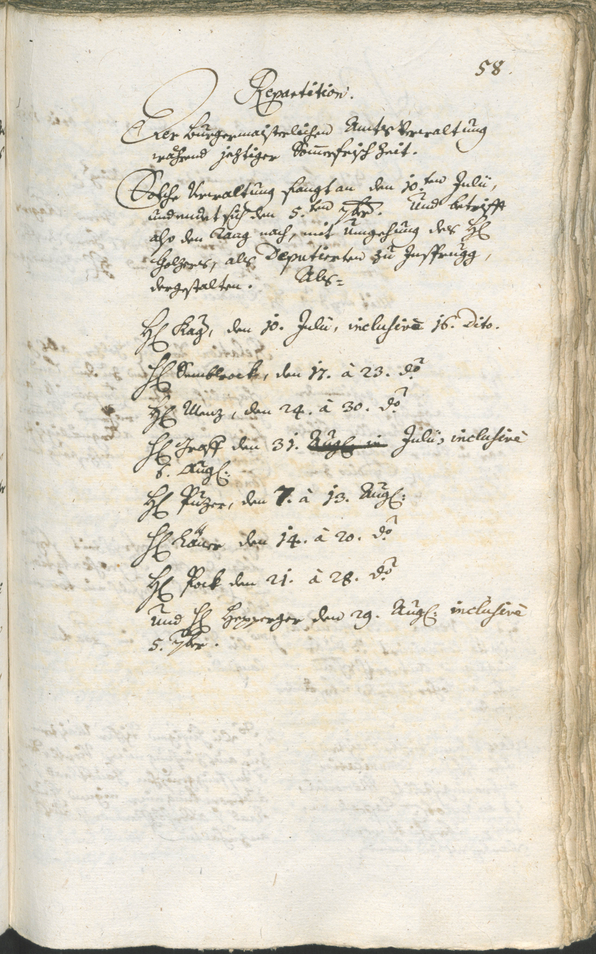 58.
Repartition.
Der Burgermaisterlichen Amts Verwaltung
während jeztiger Som̅erfrisch Zeit.
Solche Verwaltung fangt an den 10.ten Julii,
und endet sich den 5.ten 7ber. Und betrifft
also den Rang nach, mit Umgehung des H:
Holzers, als Deputierten zu Insprugg,
dergestalten. Als=
H: Kaz, den 10. Julii, inclusive 16. dito.
H: den 17. à 23. do
H: Menz, den 24. à 30. do
H: Graff den 31. Julii, inclusive
6. Aug:
H: Puzer, den 7. à 13. Aug:
H: den 14. à 20. do
H: Pock den 21. à 28. do
und H: Hepperger den 29. Aug: inclusive
5. 7ber.